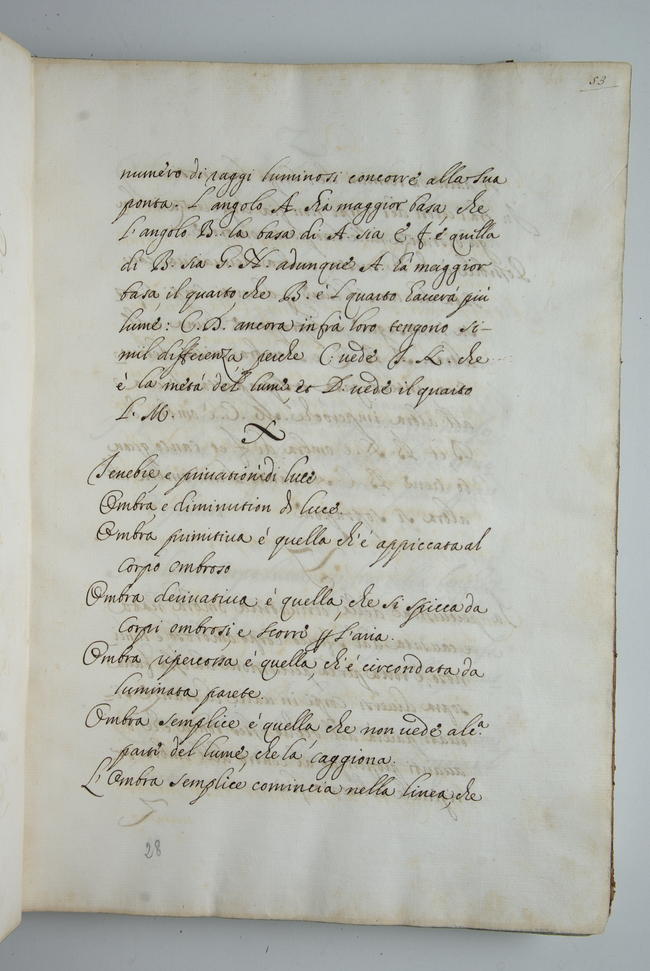 53
numero di raggi luminosi concorre alla sua
ponta. L'angolo A. hà maggior basa che
L'angolo B. la basa di A. sia e f. e quella
di B. sia G. H. adunque A. hà maggior
basa, il quarto che B. è 'l quarto haverà più
lume: C. D. ancora infrà loro tengono si-
mil differenza perche C. vede I. K. che
è la metá del lume et D. vede il quarto
L. M.
Tenebre, e privation di luce
Ombra, e diminution di luce.
Ombra primitiva é quella ch'é appiccata al
corpo ombroso
Ombra derivativa é quella, che si spicca da
corpi ombrosi, e scorre p l'aria.
Ombra ripercossa é quella, ch'é circondata da
luminata parete.
Ombra semplice é quella che non vede alc.a
parte del lume, che la caggiona.
L'Ombra semplice comincia nella linea, che
28